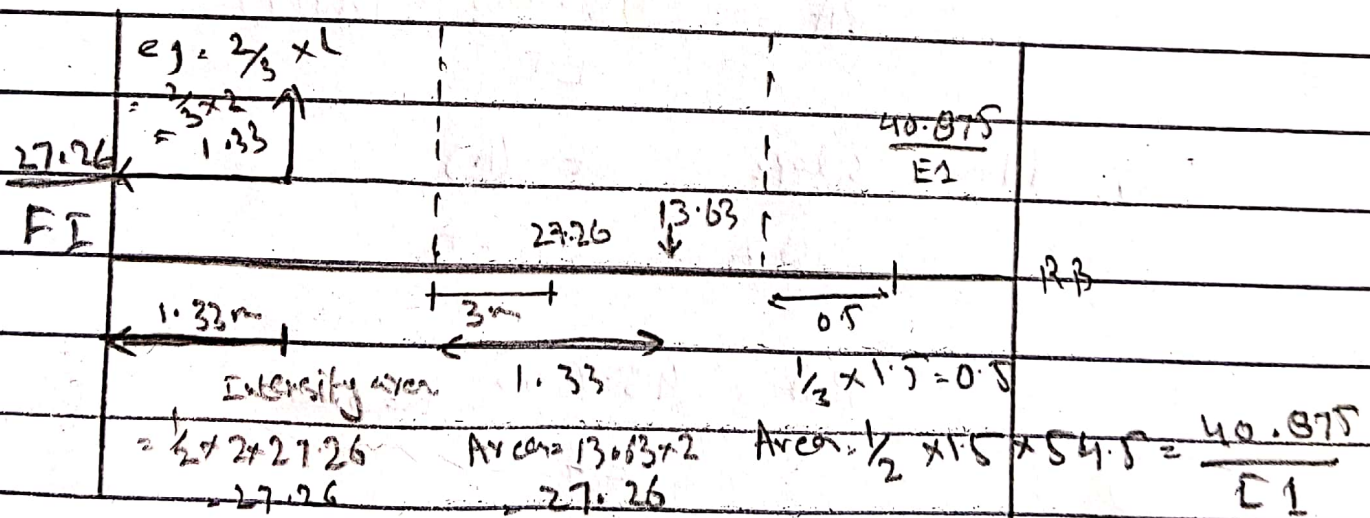 eg = 2/3 × L
= 2/3 × 2
= 1.33
27.26
FI
40.875
E1
27.26
13.63
RB
1.33m
3m
0.5
Intensity area
1.33
1/3 × 1.5 = 0.5
= 1/2 × 2 × 27.26
= 27.26
Area = 13.63 × 2
= 27.26
Area = 1/2 × 1.5 × 54.5 = 40.875
E1